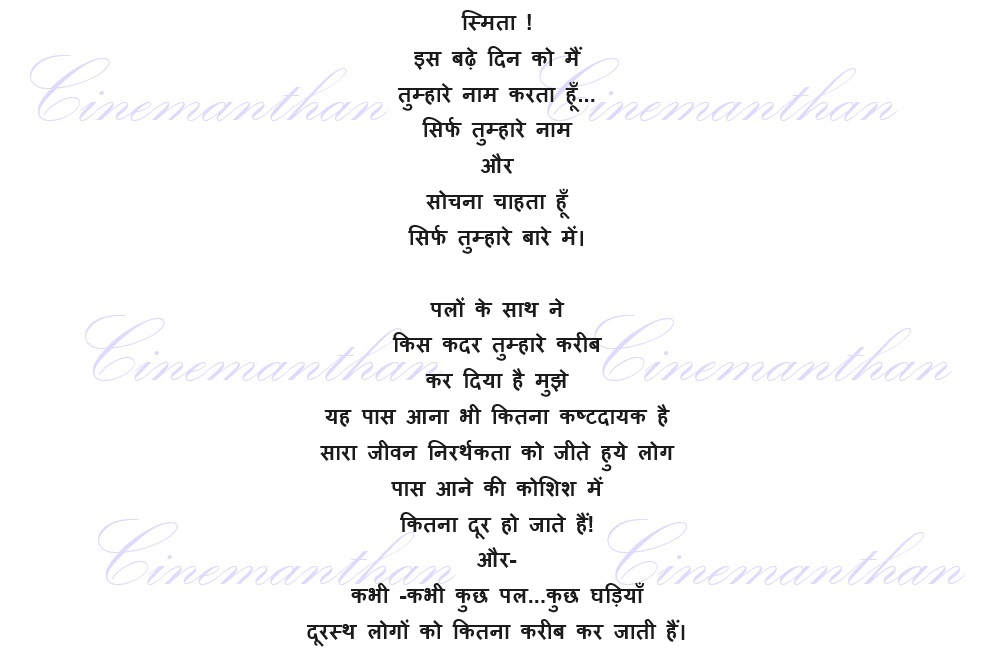 स्मिता !
इस बढ़े दिन को मैं
तुम्हारे नाम करता हूँ...
सिर्फ तुम्हारे नाम
और
सोचना चाहता हूँ
सिर्फ तुम्हारे बारे में।
पलों के साथ ने
किस कदर तुम्हारे करीब
कर दिया है मुझे
यह पास आना भी कितना कष्टदायक है
सारा जीवन निरर्थकता को जीते हुये लोग
पास आने की कोशिश में
कितना दूर हो जाते हैं!
और-
कभी -कभी कुछ पल...कुछ घड़ियाँ
दूरस्थ लोगों को कितना करीब कर जाती हैं।
Cinemanthan Cinemanthan
Cinemanthan Cinemanthan
Cinemanthan Cinemanthan